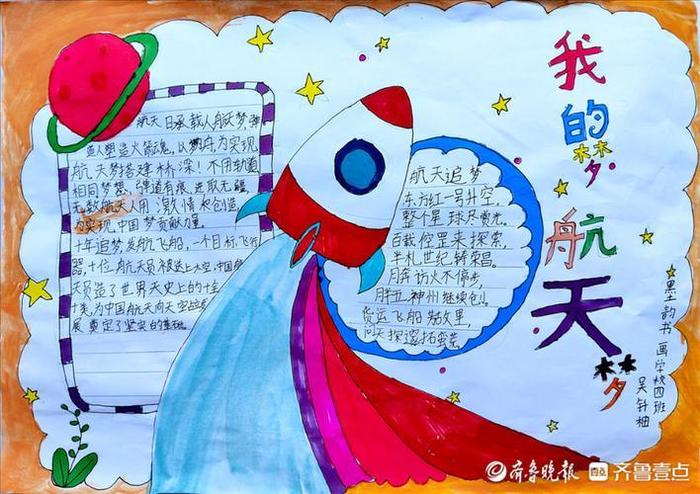 我的梦航天梦
航天日承载人航天梦,
造人塑造火箭魂,以舟为实现
航天梦搭建桥深!不用轨道
相同梦想,弹道有痕,进取无疆
无数航天人用激情水创造,
为实现中国梦贡献力量。
十年追梦发航飞船,一个目标,飞行
器,十位航天员被送上太空,中国航
天员造了世界天史上的十
十美,为中国航天向天空
展奠定了坚实的基础。
航天追梦
东方红一号升空,
整个星球尽荧光,
百载倥罣未探索,
半札世纪铸荣昌。
月奔访火不停步,
胖五神州继续创。
货运飞船为故里,
问天探邃拓蛮荒
墨韵书画学校四班
吴轩柚
齐鲁晚报 壹点 齐鲁壹点